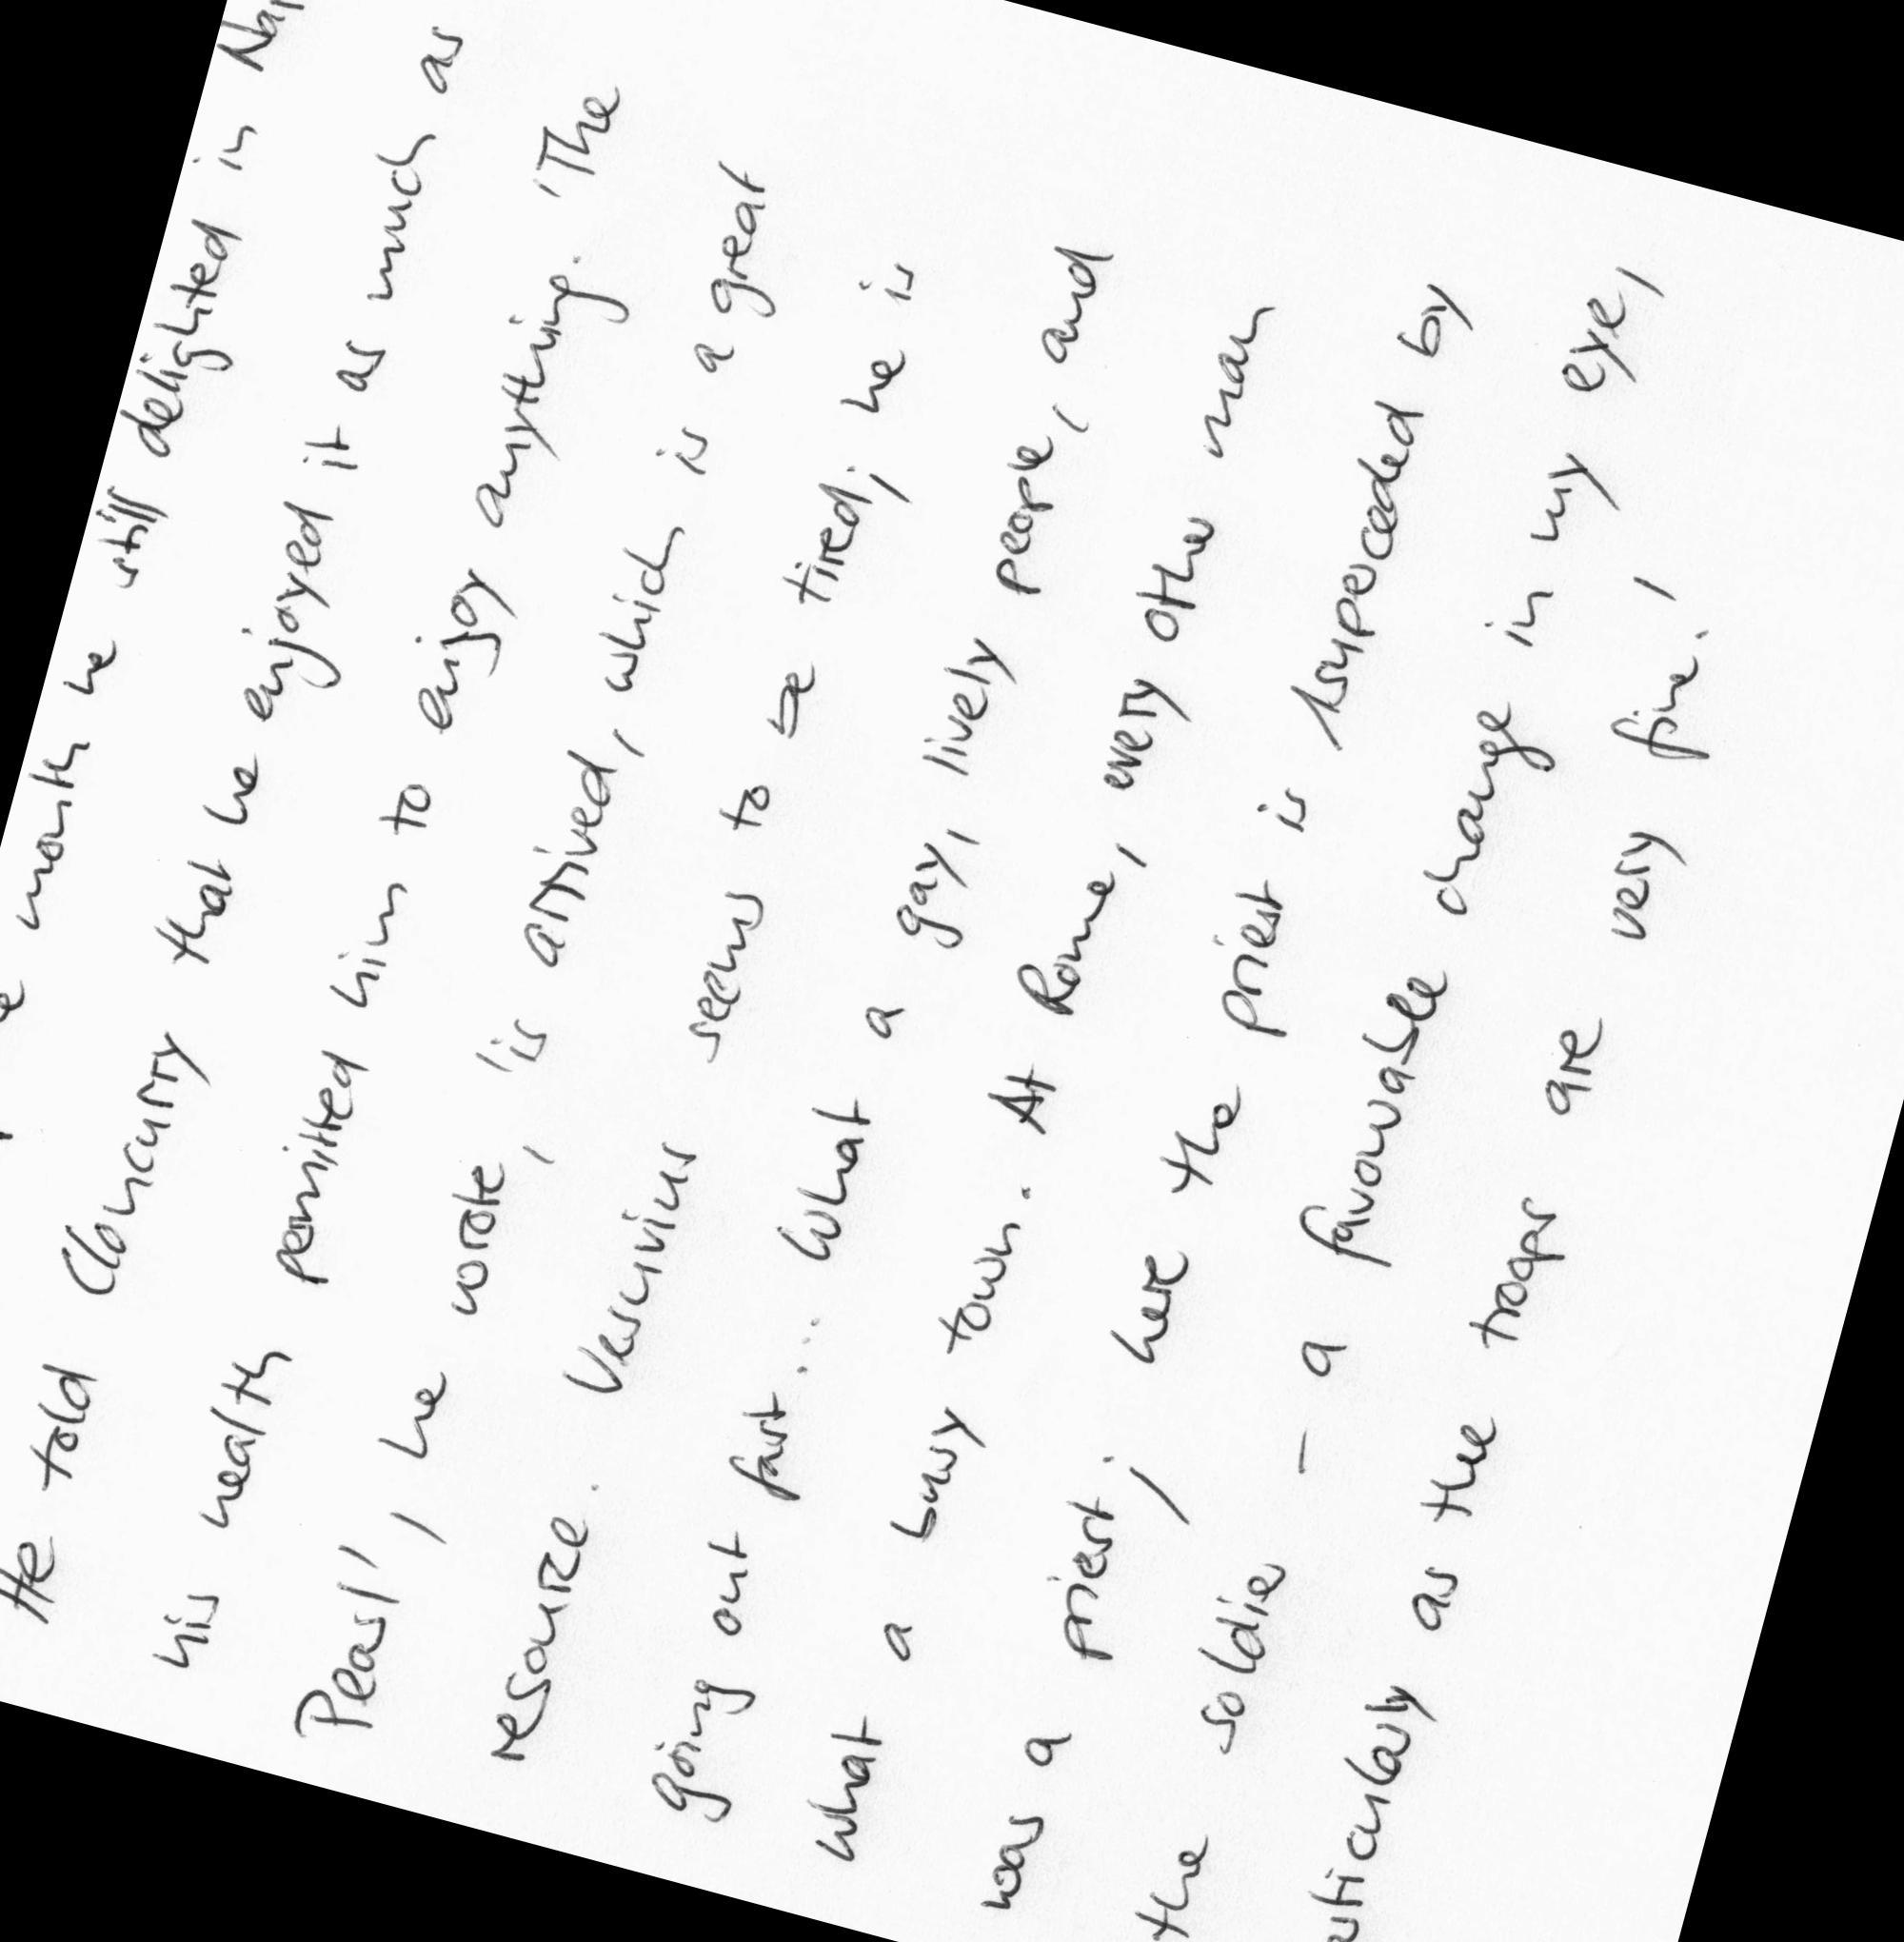 month he still delighted in
He told Cloncurry that he enjoyed it as much as
his health permitted him to enjoy anything. 'The
Pearl', he wrote, 'is arrived, which is a great
resource. Vesuvius seems to be tired; he is
going out fast... What a gay, lively people, and
what a busy town. At Rome, every other man
was a priest; here the priest is superceded by
the soldier - a favourable change in my eye,
as the troops are very fine.'